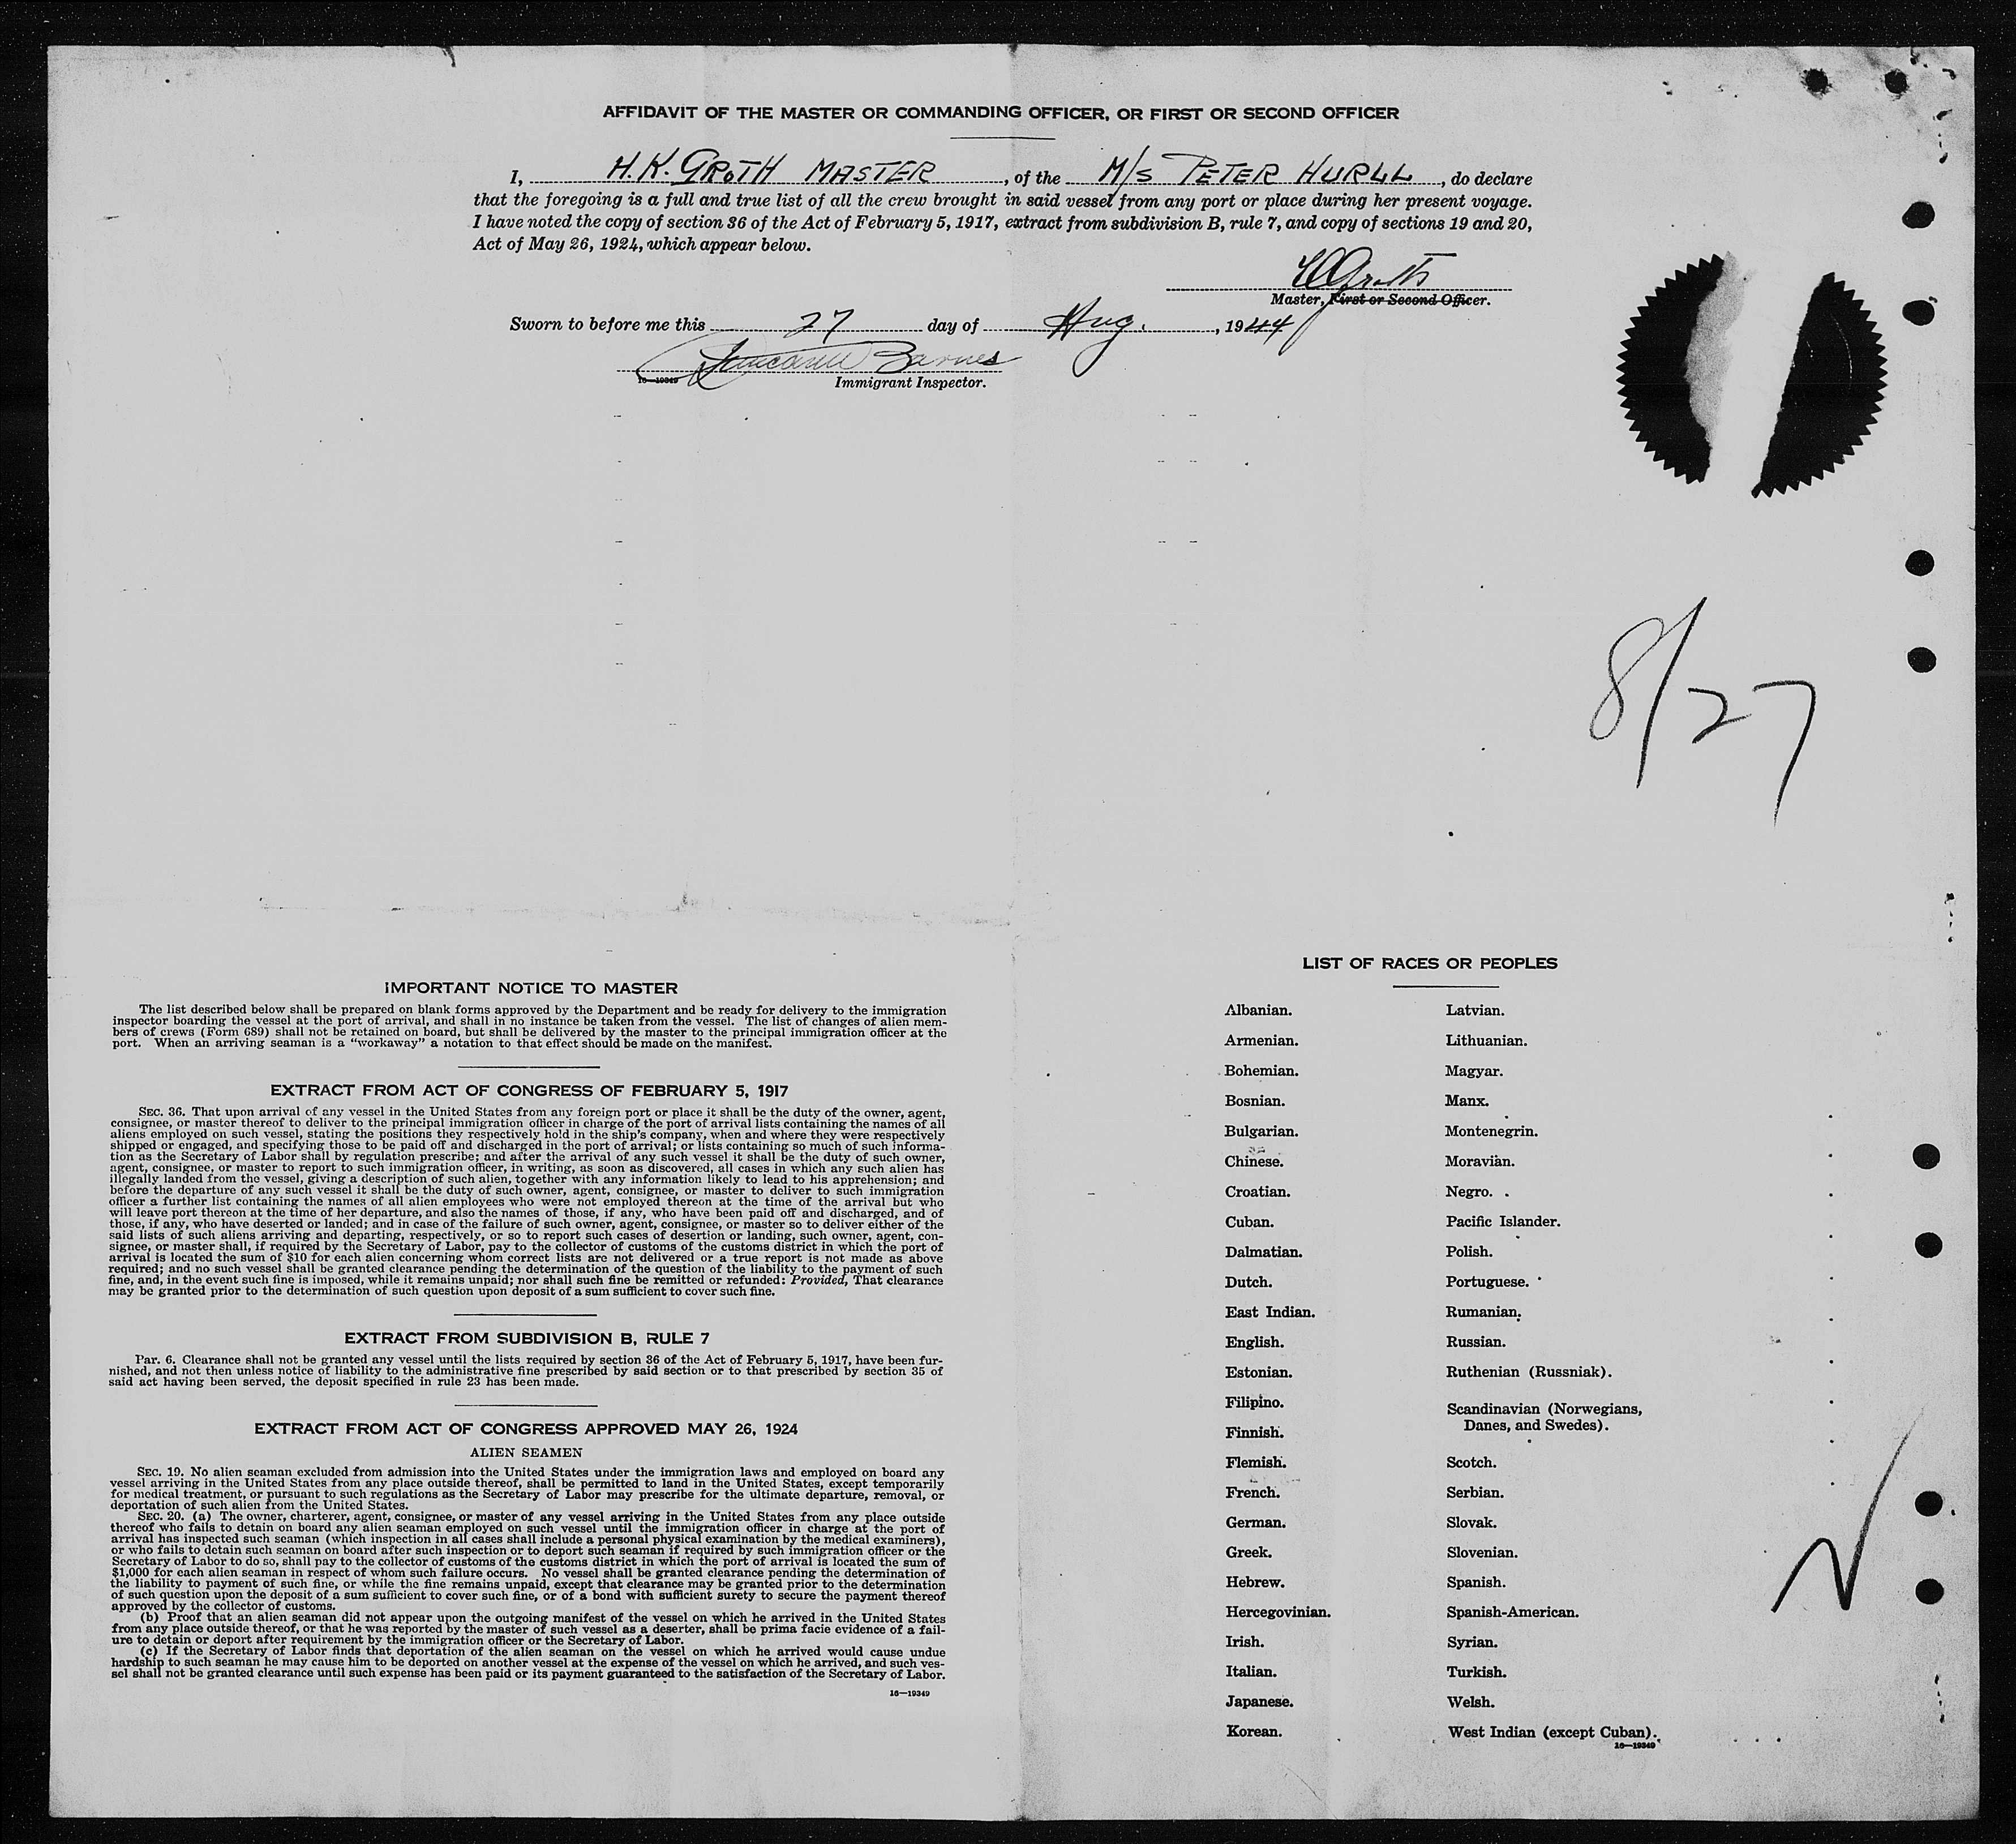 AFFIDAVIT OF THE MASTER OR COMMANDING OFFICER, OR FIRST OR SECOND OFFICER
I, H.K. GROTH MASTER, of the M/S PETER HURLL, do declare
that the foregoing is a full and true list of all the crew brought in said vessel from any port or place during her present voyage.
I have noted the copy of section 36 of the Act of February 5, 1917, extract from subdivision B, rule 7, and copy of sections 19 and 20,
Act of May 26, 1924, which appear below.
Groth
Master, First or Second Officer.
Sworn to before me this 27 day of Aug., 1944
Barnes
16—19349
Immigrant Inspector.
8/27
IMPORTANT NOTICE TO MASTER
The list described below shall be prepared on blank forms approved by the Department and be ready for delivery to the immigration
inspector boarding the vessel at the port of arrival, and shall in no instance be taken from the vessel. The list of changes of alien mem-
bers of crews (Form 689) shall not be retained on board, but shall be delivered by the master to the principal immigration officer at the
port. When an arriving seaman is a "workaway" a notation to that effect should be made on the manifest.
EXTRACT FROM ACT OF CONGRESS OF FEBRUARY 5, 1917
SEC. 36. That upon arrival of any vessel in the United States from any foreign port or place it shall be the duty of the owner, agent,
consignee, or master thereof to deliver to the principal immigration officer in charge of the port of arrival lists containing the names of all
aliens employed on such vessel, stating the positions they respectively hold in the ship's company, when and where they were respectively
shipped or engaged, and specifying those to be paid off and discharged in the port of arrival; or lists containing so much of such informa-
tion as the Secretary of Labor shall by regulation prescribe; and after the arrival of any such vessel it shall be the duty of such owner,
agent, consignee, or master to report to such immigration officer, in writing, as soon as discovered, all cases in which any such alien has
illegally landed from the vessel, giving a description of such alien, together with any information likely to lead to his apprehension; and
before the departure of any such vessel it shall be the duty of such owner, agent, consignee, or master to deliver to such immigration
officer a further list containing the names of all alien employees who were not employed thereon at the time of the arrival but who
will leave port thereon at the time of her departure, and also the names of those, if any, who have been paid off and discharged, and of
those, if any, who have deserted or landed; and in case of the failure of such owner, agent, consignee, or master so to deliver either of the
said lists of such aliens arriving and departing, respectively, or so to report such cases of desertion or landing, such owner, agent, con-
signee, or master shall, if required by the Secretary of Labor, pay to the collector of customs of the customs district in which the port of
arrival is located the sum of $10 for each alien concerning whom correct lists are not delivered or a true report is not made as above
required; and no such vessel shall be granted clearance pending the determination of the question of the liability to the payment of such
fine, and, in the event such fine is imposed, while it remains unpaid; nor shall such fine be remitted or refunded: Provided, That clearance
may be granted prior to the determination of such question upon deposit of a sum sufficient to cover such fine.
EXTRACT FROM SUBDIVISION B, RULE 7
PAR. 6. Clearance shall not be granted any vessel until the lists required by section 36 of the Act of February 5, 1917, have been fur-
nished, and not then unless notice of liability to the administrative fine prescribed by said section or to that prescribed by section 35 of
said act having been served, the deposit specified in rule 23 has been made.
EXTRACT FROM ACT OF CONGRESS APPROVED MAY 26, 1924
ALIEN SEAMEN
SEC. 19. No alien seaman excluded from admission into the United States under the immigration laws and employed on board any
vessel arriving in the United States from any place outside thereof, shall be permitted to land in the United States, except temporarily
for medical treatment, or pursuant to such regulations as the Secretary of Labor may prescribe for the ultimate departure, removal, or
deportation of such alien from the United States.
SEC. 20. (a) The owner, charterer, agent, consignee, or master of any vessel arriving in the United States from any place outside
thereof who fails to detain on board any alien seaman employed on such vessel until the immigration officer in charge at the port of
arrival has inspected such seaman (which inspection in all cases shall include a personal physical examination by the medical examiners),
or who fails to detain such seaman on board after such inspection or to deport such seaman if required by such immigration officer or the
Secretary of Labor to do so, shall pay to the collector of customs of the customs district in which the port of arrival is located the sum of
$1,000 for each alien seaman in respect of whom such failure occurs. No vessel shall be granted clearance pending the determination of
the liability to payment of such fine, or while the fine remains unpaid, except that clearance may be granted prior to the determination
of such question upon the deposit of a sum sufficient to cover such fine, or of a bond with sufficient surety to secure the payment thereof
approved by the collector of customs.
(b) Proof that an alien seaman did not appear upon the outgoing manifest of the vessel on which he arrived in the United States
from any place outside thereof, or that he was reported by the master of such vessel as a deserter, shall be prima facie evidence of a fail-
ure to detain or deport after requirement by the immigration officer or the Secretary of Labor.
(c) If the Secretary of Labor finds that deportation of the alien seaman on the vessel on which he arrived would cause undue
hardship to such seaman he may cause him to be deported on another vessel at the expense of the vessel on which he arrived, and such ves-
sel shall not be granted clearance until such expense has been paid or its payment guaranteed to the satisfaction of the Secretary of Labor.
16—19349
LIST OF RACES OR PEOPLES
Albanian.
Armenian.
Bohemian.
Bosnian.
Bulgarian.
Chinese.
Croatian.
Cuban.
Dalmatian.
Dutch.
East Indian.
English.
Estonian.
Filipino.
Finnish.
Flemish.
French.
German.
Greek.
Hebrew.
Hercegovinian.
Irish.
Italian.
Japanese.
Korean.
Latvian.
Lithuanian.
Magyar.
Manx.
Montenegrin.
Moravian.
Negro.
Pacific Islander.
Polish.
Portuguese.
Rumanian.
Russian.
Ruthenian (Russniak).
Scandinavian (Norwegians,
Danes, and Swedes).
Scotch.
Serbian.
Slovak.
Slovenian.
Spanish.
Spanish-American.
Syrian.
Turkish.
Welsh.
West Indian (except Cuban).
16—19349